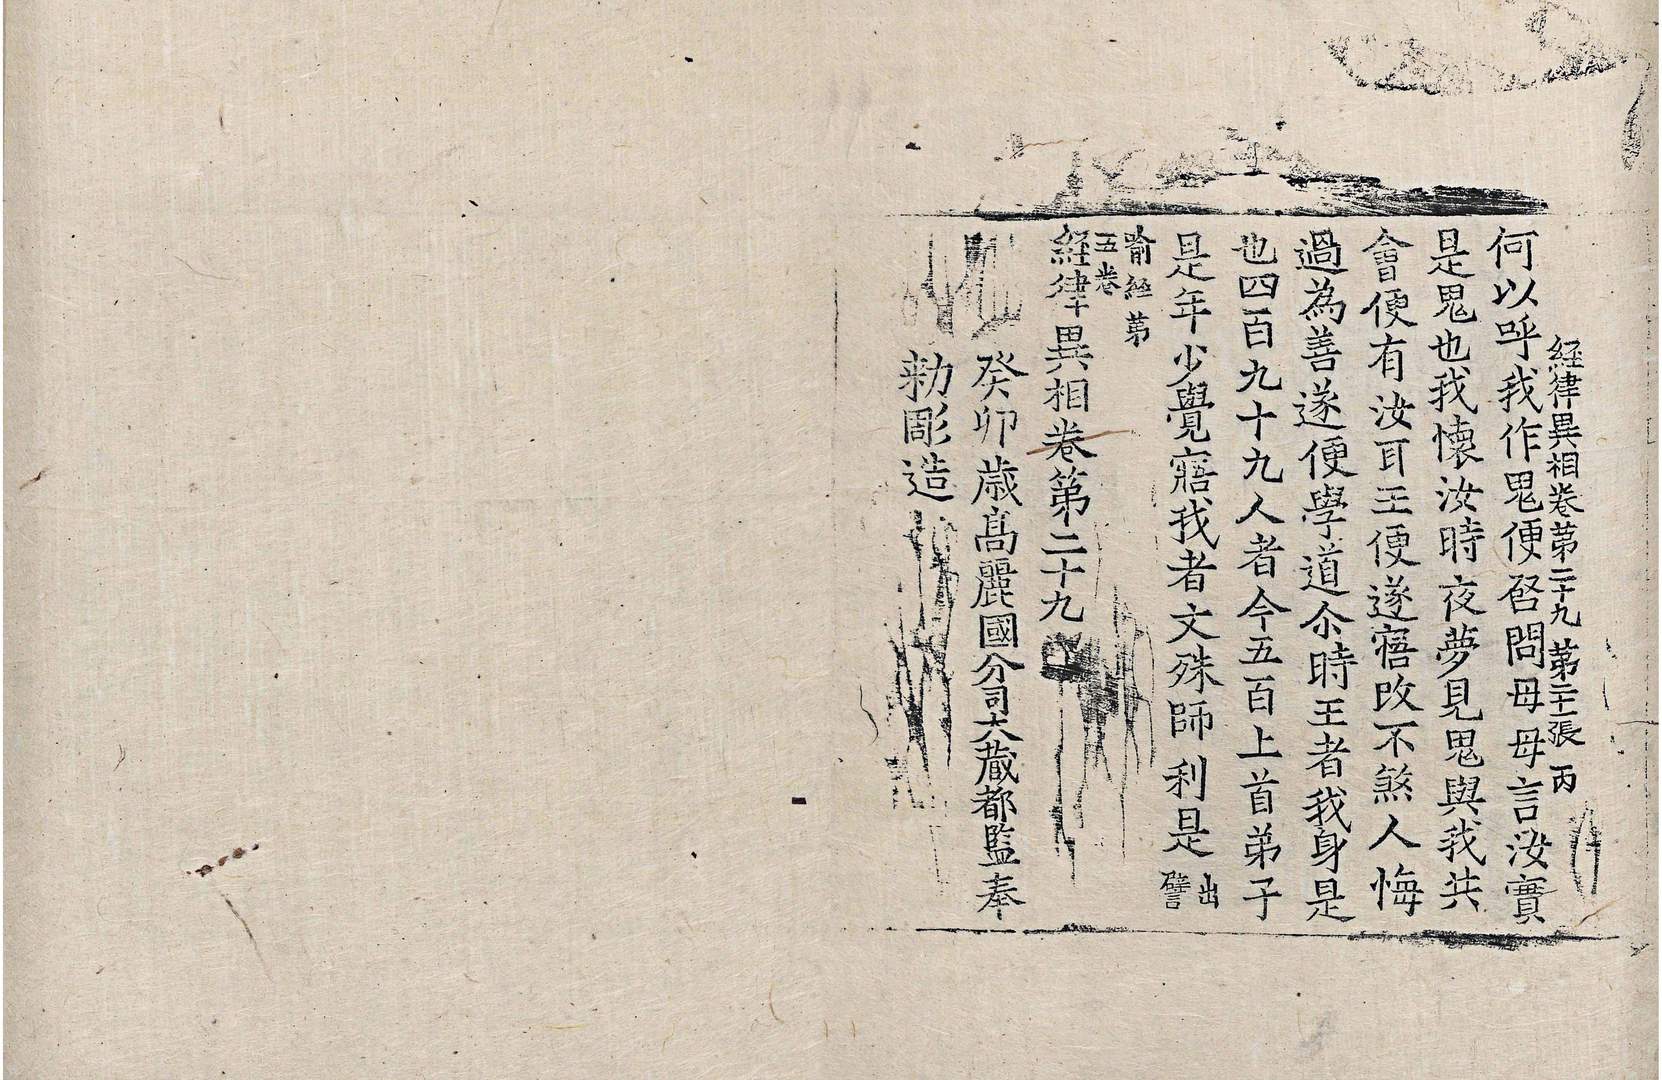 経律異相卷第二十九 第二十一張 丙
何以呼我作鬼便啓問母母言汝實
是鬼也我懷汝時夜夢見鬼與我共
會便有汝耳王便遂寤改不煞人悔
過為善遂便學道尒時王者我身是
也四百九十九人者今五百上首弟子
是年少覺寤我者文殊師利是出譬
喻経第
五卷
経律異相卷第二十九
癸卯歳髙麗國分司大藏都監奉
勑彫造